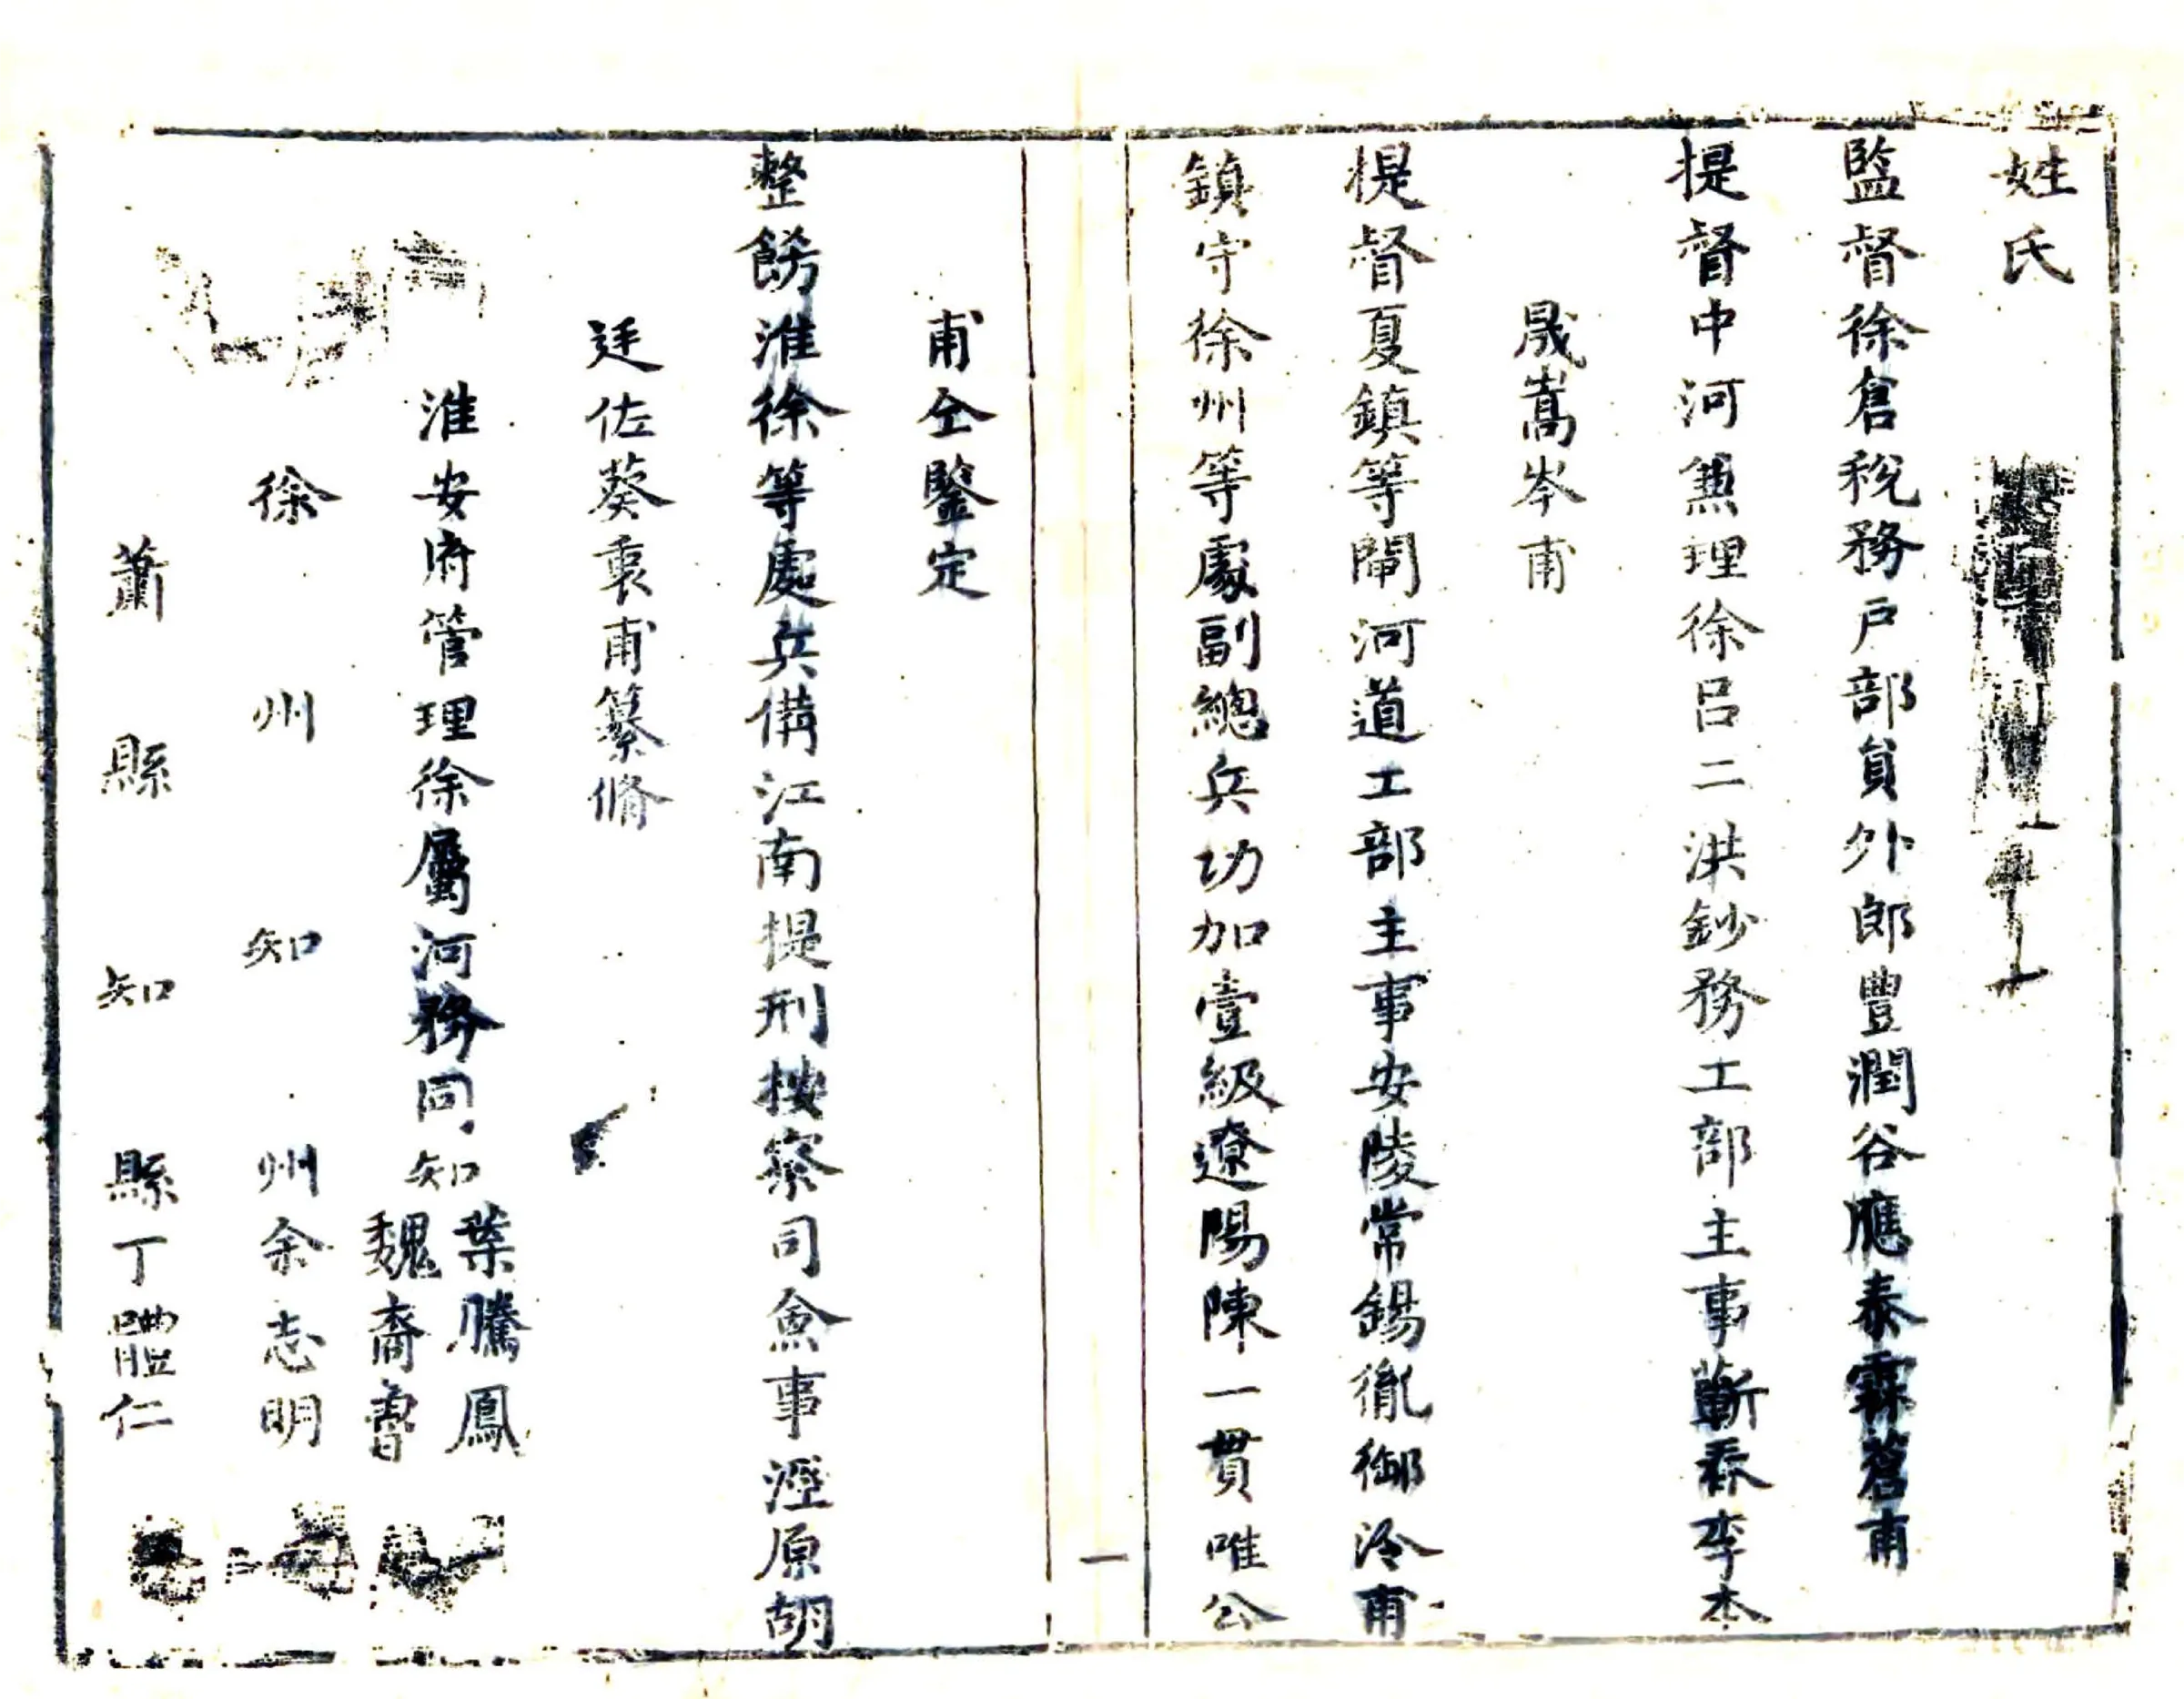 姓氏
監督徐倉稅務戶部員外郎豐潤谷應泰霖蒼甫
提督中河兼理徐呂二洪鈔務工部主事蘄春李本
晟嵩岑甫
提督夏鎮等閘河道工部主事安陵常錫胤御泠甫
鎮守徐州等處副總兵功加壹級遼陽陳一貫唯公
甫仝鑒定
一
整飭淮徐等處兵備江南提刑按察司僉事涇原胡
廷佐葵衷甫纂脩
淮安府管理徐屬河務同知葉騰鳳
魏裔魯
徐州知州余志明
蕭縣知縣丁體仁